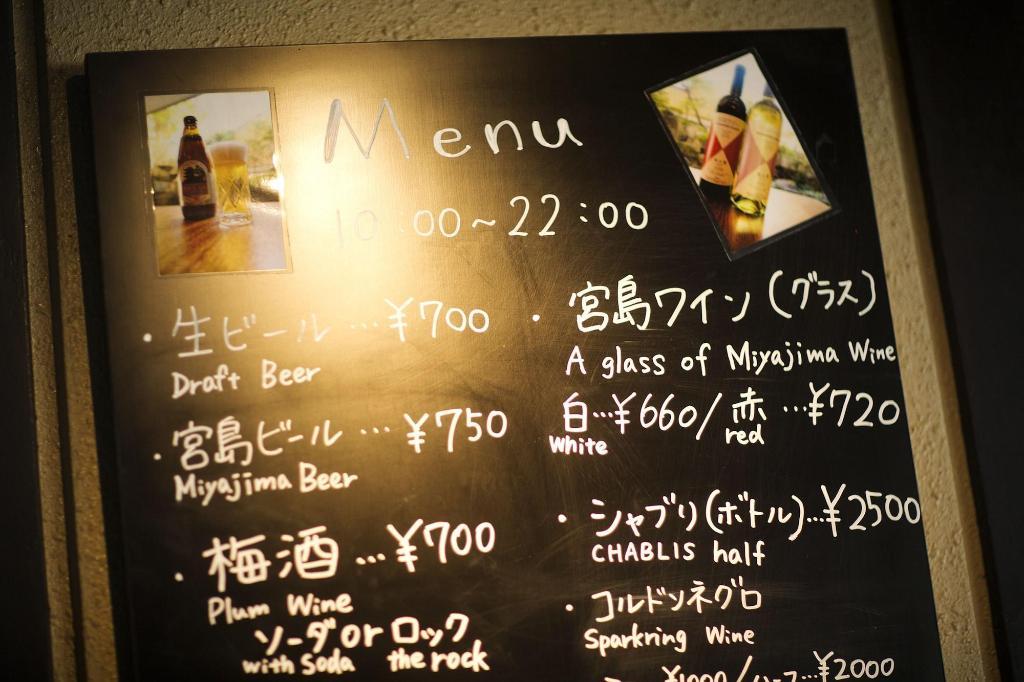 Menu
10:00~22:00
・生ビール…¥700
Draft Beer
・宮島ビール…¥750
Miyajima Beer
・梅酒…¥700
Plum Wine
ソーダ or ロック
with soda the rock
・宮島ワイン(グラス)
A glass of Miyajima Wine
白…¥660/赤…¥720
White red
・シャブリ(ボトル)…¥2500
CHABLIS half
・コルドンネグロ
Sparkring Wine
¥2000